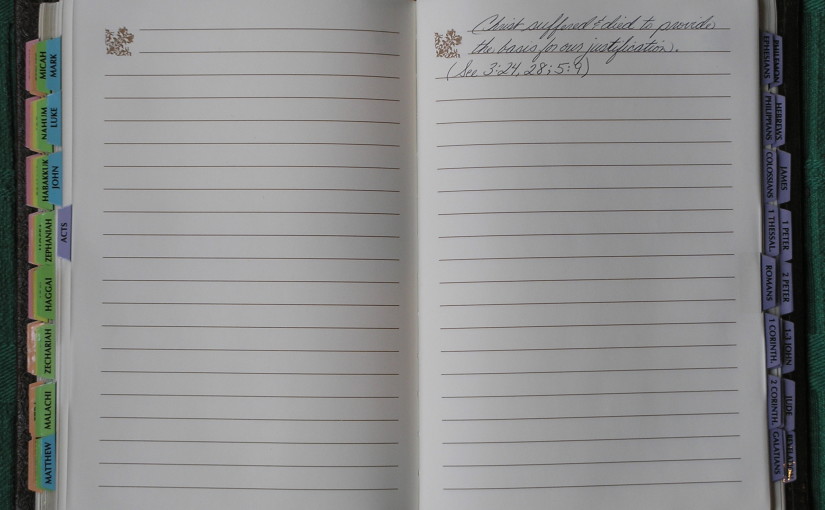 MICAH
MARK
NAHUM
LUKE
HABAKKUK
JOHN
ZEPHANIAH
ACTS
HAGGAI
ZECHARIAH
MALACHI
MATTHEW
Christ suffered & died to provide
the basis for our justification.
(See 3:24, 28; 5:9)
EPHESIANS
PHILEMON
PHILIPPIANS
HEBREWS
COLOSSIANS
JAMES
1 THESSAL.
1 PETER
ROMANS
2 PETER
1 CORINTH.
1-3 JOHN
2 CORINTH.
JUDE
GALATIANS